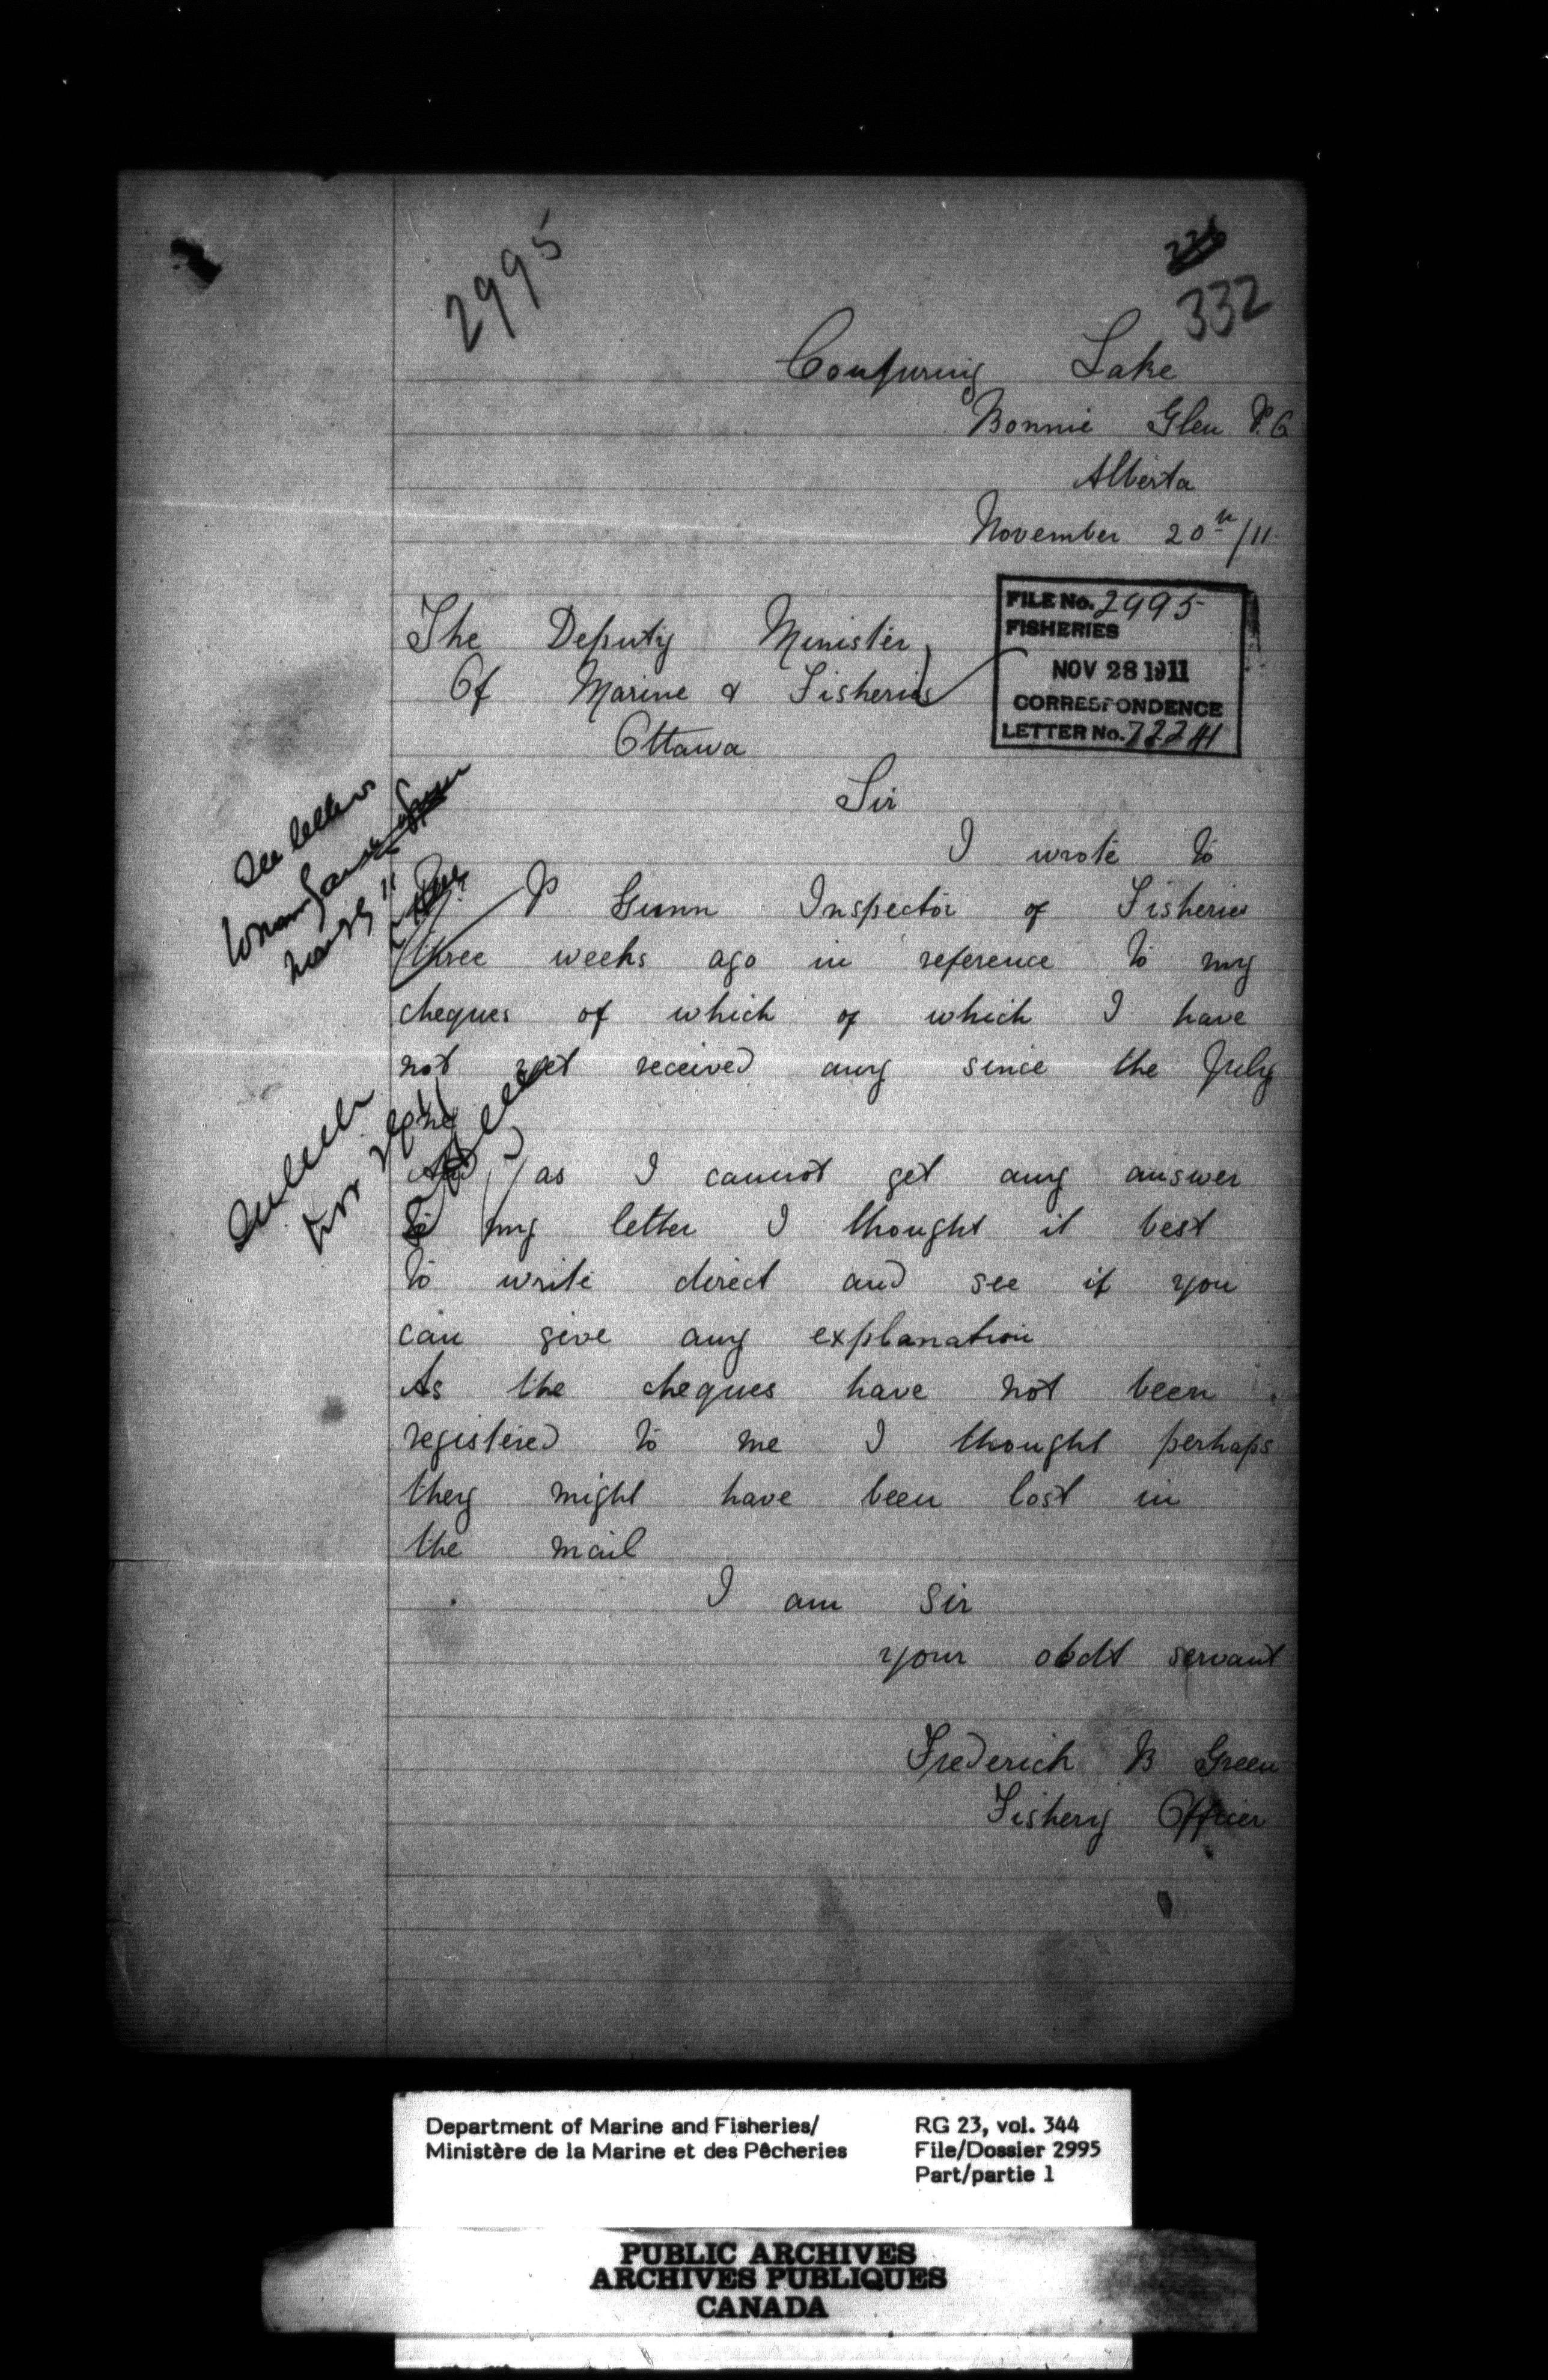 2995
332
Conjuring Lake
Bonnie Glen P.O
Alberta
November 20th/11
FILE No. 2995
FISHERIES
NOV 28 1911
CORRESPONDENCE
LETTER No.
The Deputy Minister
Of Marine & Fisheries
Ottawa
Sir
I wrote to
P Gunn Inspector of Fisheries
three weeks ago in reference to my
cheques of which of which I have
not yet received any since the July
one
as I cannot get any answer
to my letter I thought it best
to write direct and see if you
can give any explanation
As the cheques have not been
registered to me I thought perhaps
they might have been lost in
the mail
I am Sir
your obdt servant
Frederich B Green
Fishery Officer
See letters
Department of Marine and Fisheries/
Ministère de la Marine et des Pêcheries
RG 23, vol. 344
File/Dossier 2995
Part/partie 1
PUBLIC ARCHIVES
ARCHIVES PUBLIQUES
CANADA